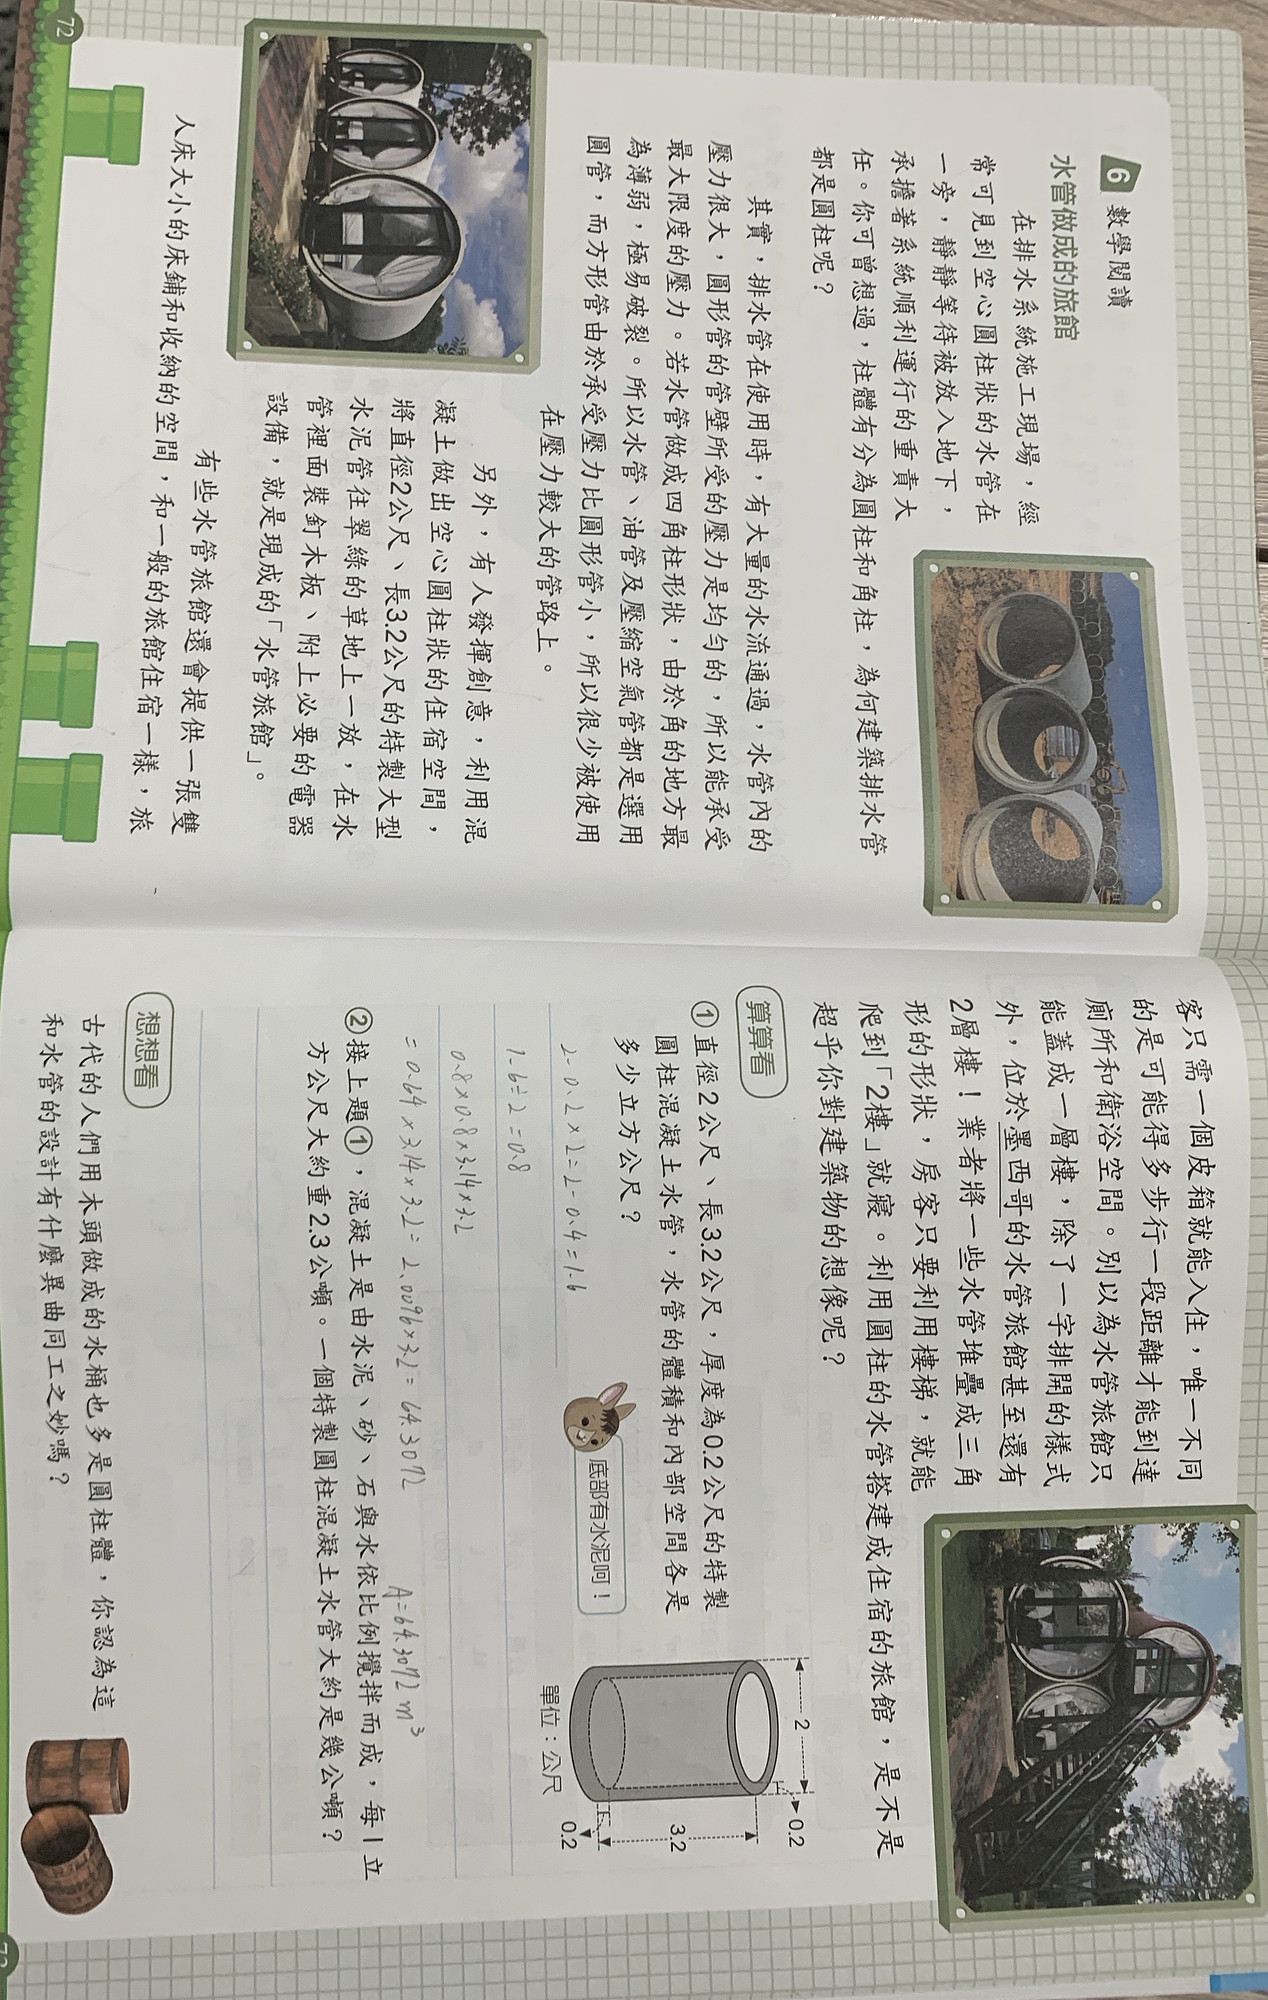 6 數學閱讀
水管做成的旅館
在排水系統施工現場，經
常可見到空心圓柱狀的水管在
一旁，靜靜等待被放入地下，
承擔著系統順利運行的重責大
任。你可曾想過，柱體有分為圓柱和角柱，為何建築排水管
都是圓柱呢？
其實，排水管在使用時，有大量的水流通過，水管內的
壓力很大，圓形管的管壁所受的壓力是均勻的，所以能承受
最大限度的壓力。若水管做成四角柱形狀，由於角的地方最
為薄弱，極易破裂。所以水管、油管及壓縮空氣管都是選用
圓管，而方形管由於承受壓力比圓形管小，所以很少被使用
在壓力較大的管路上。
另外，有人發揮創意，利用混
凝土做出空心圓柱狀的住宿空間，
將直徑2公尺、長3.2公尺的特製大型
水泥管往翠綠的草地上一放，在水
管裡面裝釘木板、附上必要的電器
設備，就是現成的「水管旅館」。
有些水管旅館還會提供一張雙
人床大小的床鋪和收納的空間，和一般的旅館住宿一樣，旅
72
客只需一個皮箱就能入住，唯一不同
的是可能得多步行一段距離才能到達
廁所和衛浴空間。別以為水管旅館只
能蓋成一層樓，除了一字排開的樣式
外，位於墨西哥的水管旅館甚至還有
2層樓！業者將一些水管堆疊成三角
形的形狀，房客只要利用樓梯，就能
爬到「2樓」就寢。利用圓柱的水管搭建成住宿的旅館，是不是
超乎你對建築物的想像呢？
算算看
①直徑2公尺、長3.2公尺，厚度為0.2公尺的特製
圓柱混凝土水管，水管的體積和內部空間各是
多少立方公尺？
底部有水泥呵！
2
0.2
3.2
0.2
單位：公尺
2-0.2×2=2-0.4=1.6
1.6÷2=0.8
0.8×0.8×3.14×3.2
=0.64×3.14×3.2=2.0096×3.2=64.3072
A=64.3072m³
②接上題①，混凝土是由水泥、砂、石與水依比例攪拌而成，每1立
方公尺大約重2.3公噸。一個特製圓柱混凝土水管大約是幾公噸？
想想看
古代的人們用木頭做成的水桶也多是圓柱體，你認為這
和水管的設計有什麼異曲同工之妙嗎？